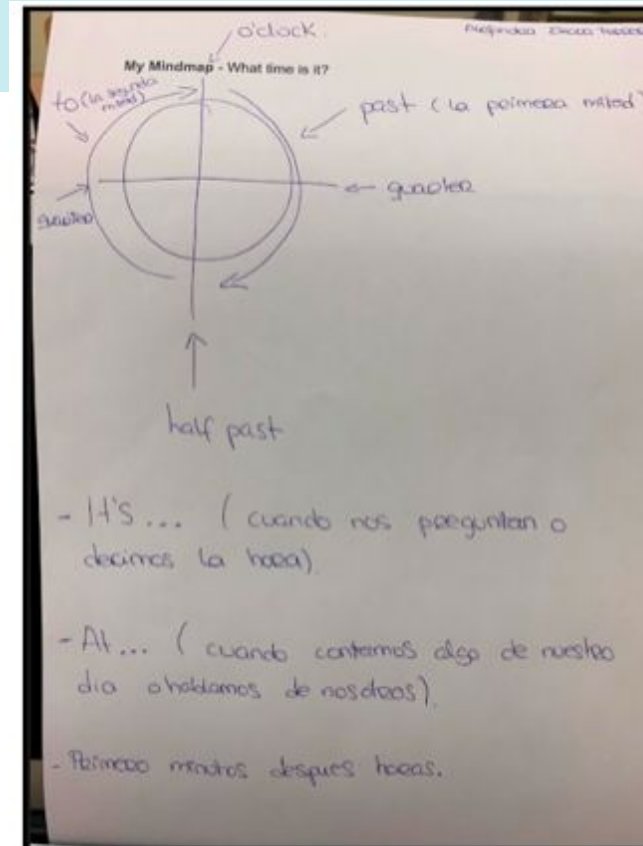 o'clock.
My Mindmap - What time is it?
to (la segunda
mitad)
past (la primera mitad)
quarter
quarter
half past
- It's ... ( cuando nos preguntan o
decimos la hora).
- At ... ( cuando contamos algo de nuestro
dia o hablamos de nosotros).
- Primero minutos despues horas.